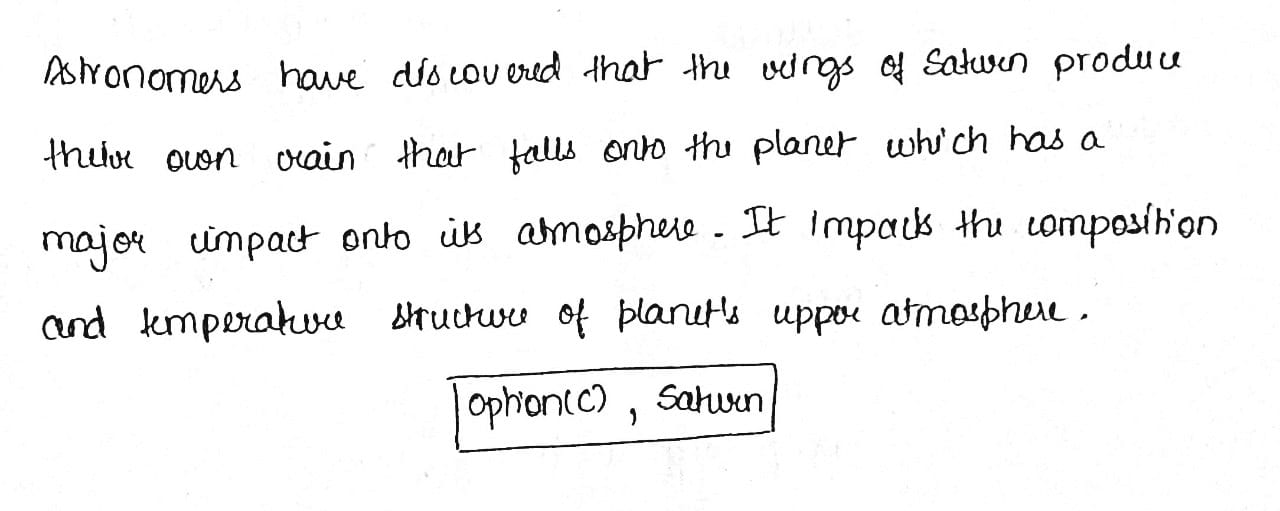 Astronomers have discovered that the rings of Saturn produce
their own rain that falls onto the planet which has a
major impact onto its atmosphere. It impacts the composition
and temperature structure of planet's upper atmosphere.
option(c), Saturn